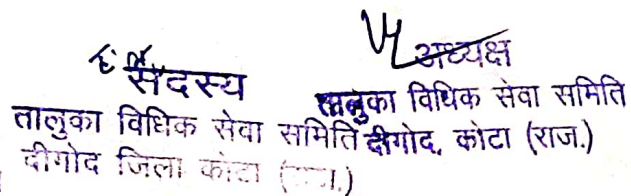 सदस्य
तालुका विधिक सेवा समिति
दीगोद जिला कोटा (राज.)
अध्यक्ष
तालुका विधिक सेवा समिति
दीगोद, कोटा (राज.)